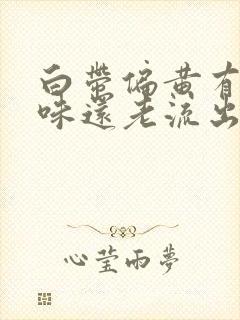 白带偏黄有
味還老流出
心莹雨夢